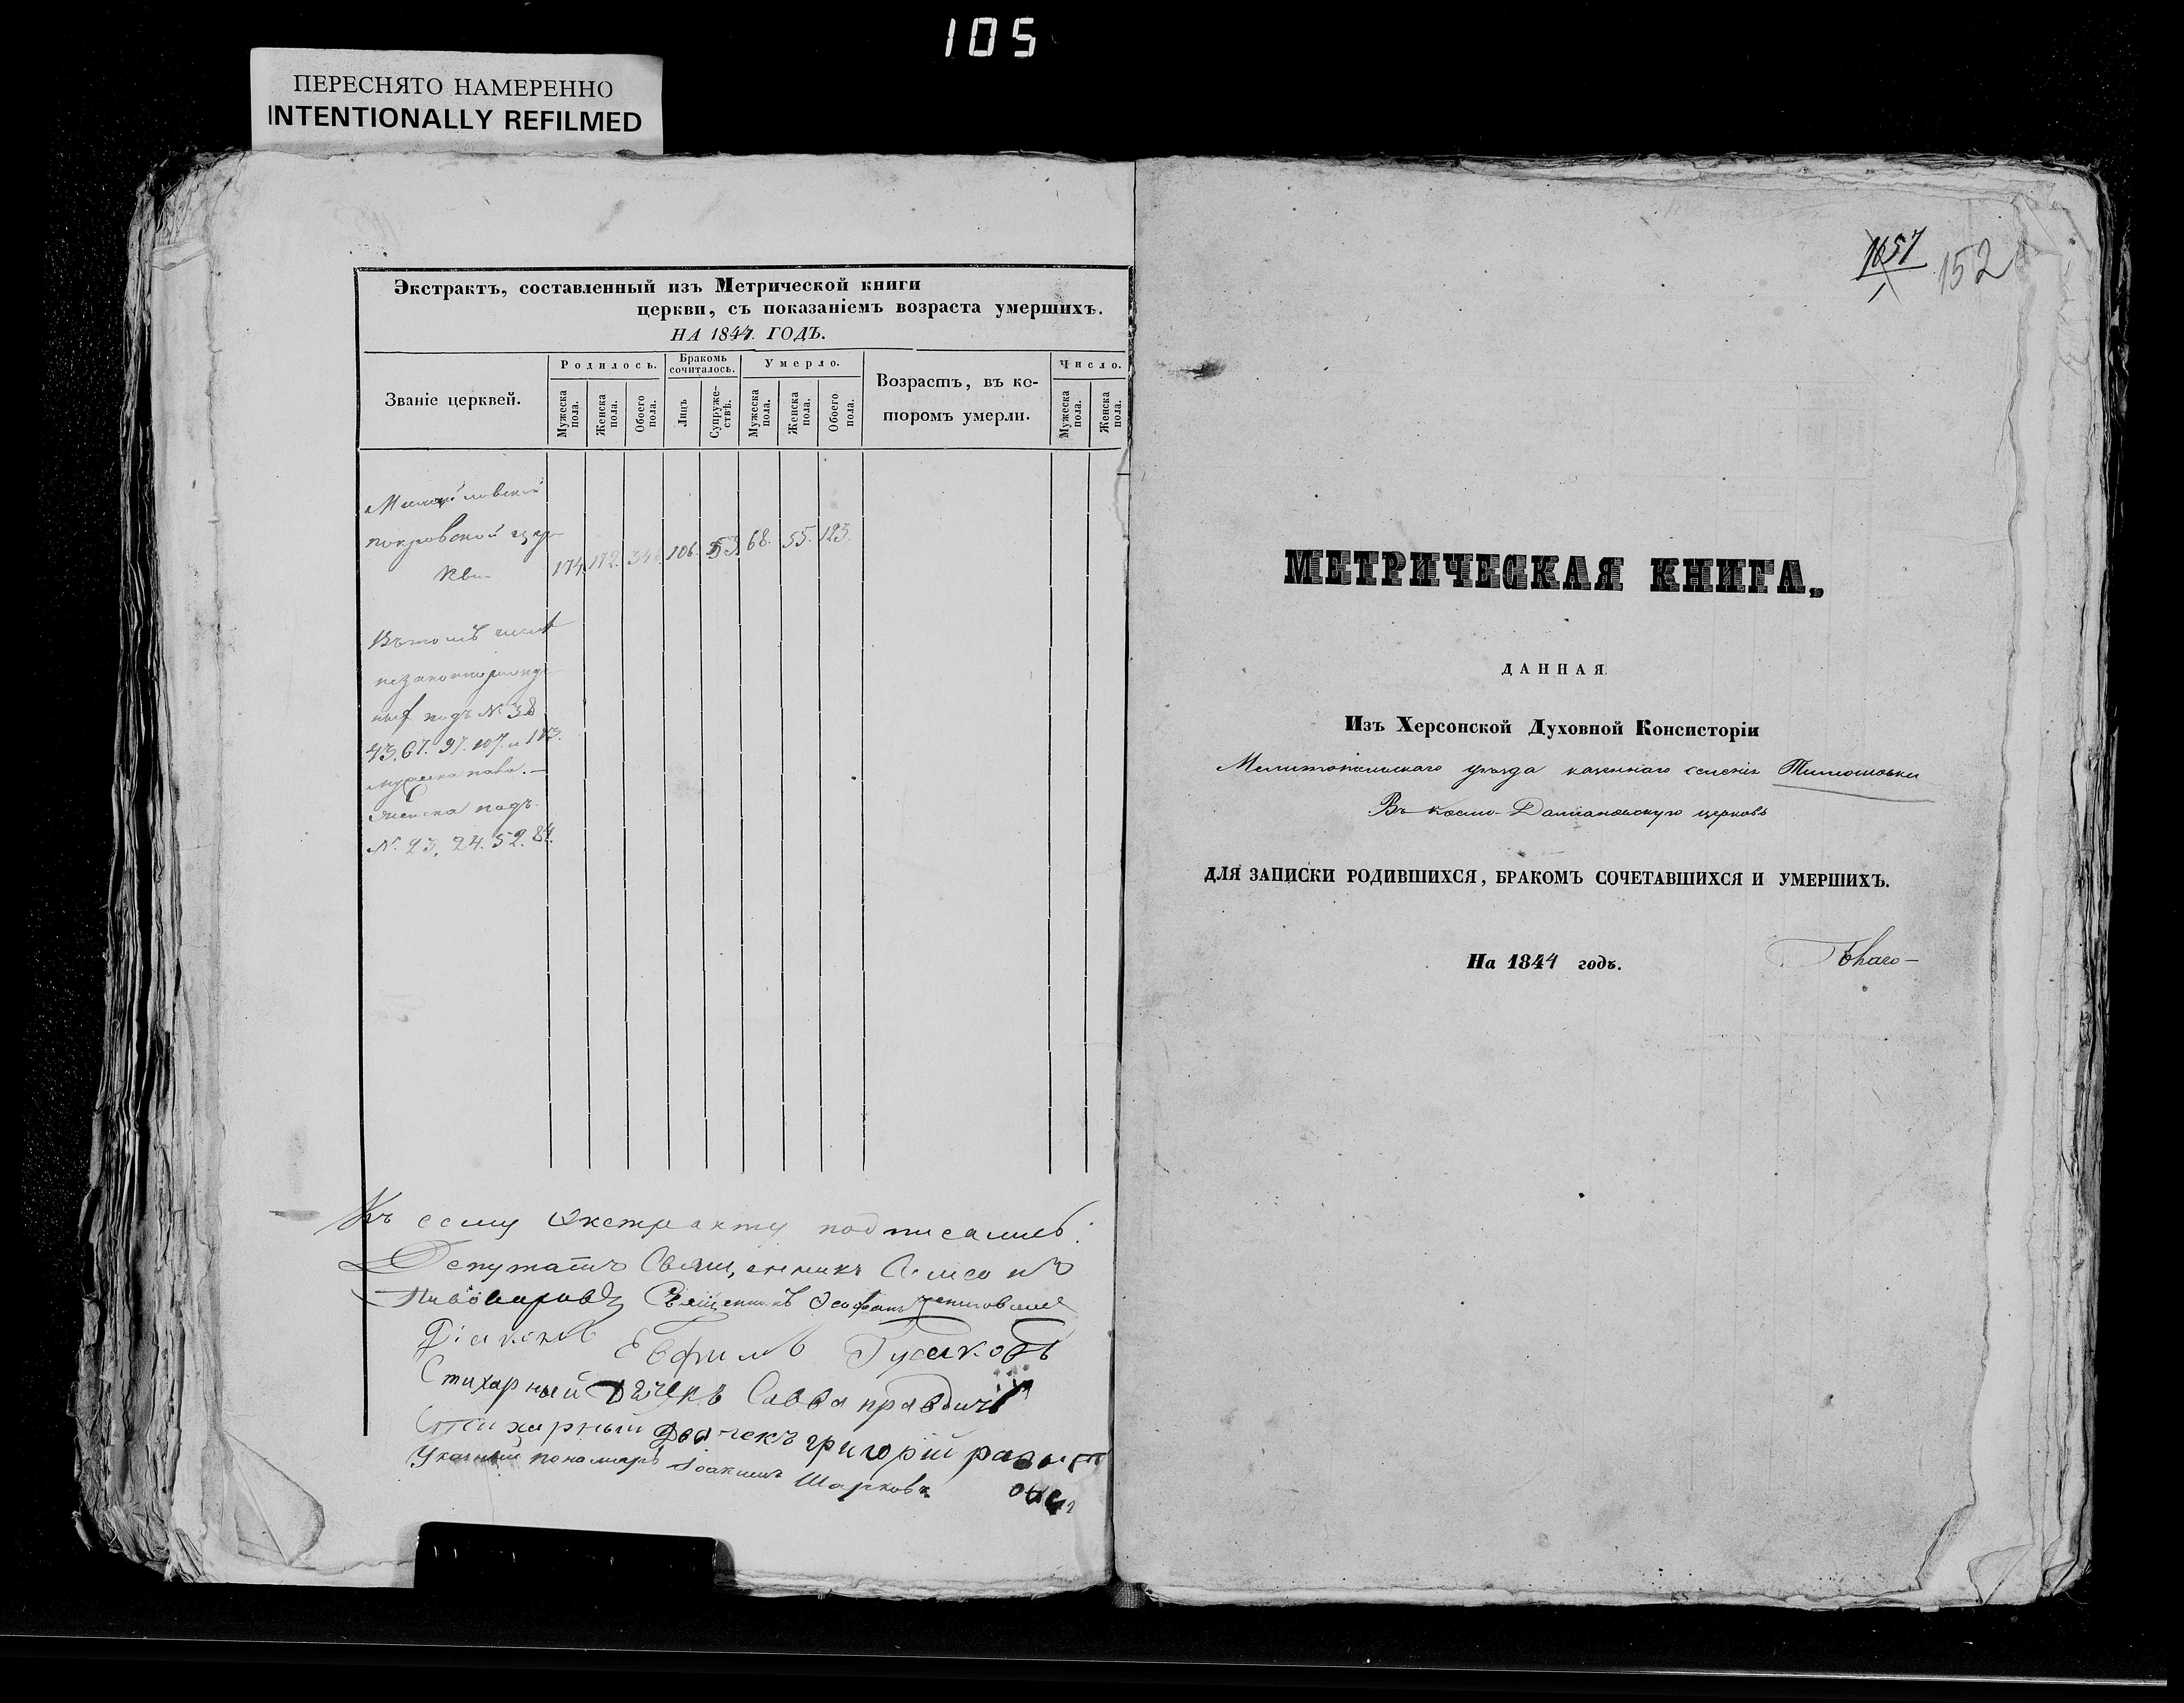 105
ПЕРЕСНЯТО НАМЕРЕННО
INTENTIONALLY REFILMED
Экстрактъ, составленный изъ Метрической книги
церкви, съ показаніемъ возраста умершихъ.
НА 1844. ГОДЪ.
Званіе церквей.
Родилось.
Бракомъ сочиталось.
Умерло.
Возрастъ, въ которомъ умерли.
Число.
Мужеска пола.
Женска пола.
Обоего пола.
Лицъ
Супружествъ.
Мужеска пола.
Женска пола.
Обоего пола.
Мужеска пола.
Женска пола.
покровской цер
кви
174. 172. 346 106. 53 68. 55. 123.
Въ томъ числѣ
незаконнорожде
ных подъ №. 38
43, 67. 97. 107. и
мужеска пола.
женска подъ
№. 23, 24. 52. 84.
Къ сему Экстракту подписались:
Депутатъ Священникъ
Пивоваровъ Священникъ
Діаконъ Ефимъ Гусаковъ
Стихарный Дьячекъ Савва правдичь
Стихарный Дьячекъ григорій
Указный пономарь Іоакимъ Шарковъ
1057
152
МЕТРИЧЕСКАЯ КНИГА,
ДАННАЯ
Изъ Херсонской Духовной Консисторіи
Мелитопольскаго уѣзда казеннаго селенія Тимошовки
Въ Космо-Даміановскую церковь
ДЛЯ ЗАПИСКИ РОДИВШИХСЯ, БРАКОМЪ СОЧЕТАВШИХСЯ И УМЕРШИХЪ.
На 1844 годъ.